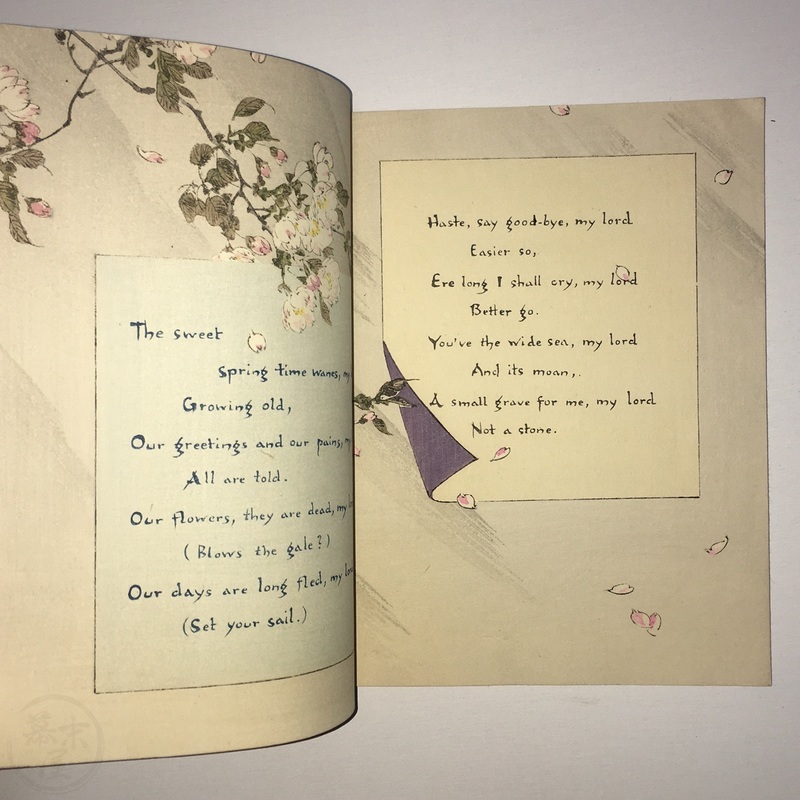 The sweet
Spring time wanes, my
Growing old,
Our greetings and our pains, my
All are told.
Our flowers, they are dead, my lo
( Blows the gale ? )
Our days are long fled, my lor
(Set your sail.)
Haste, say good-bye, my lord
Easier so,
Ere long I shall cry, my lord
Better go.
You've the wide sea, my lord
And its moan,.
A small grave for me, my lord
Not a stone.